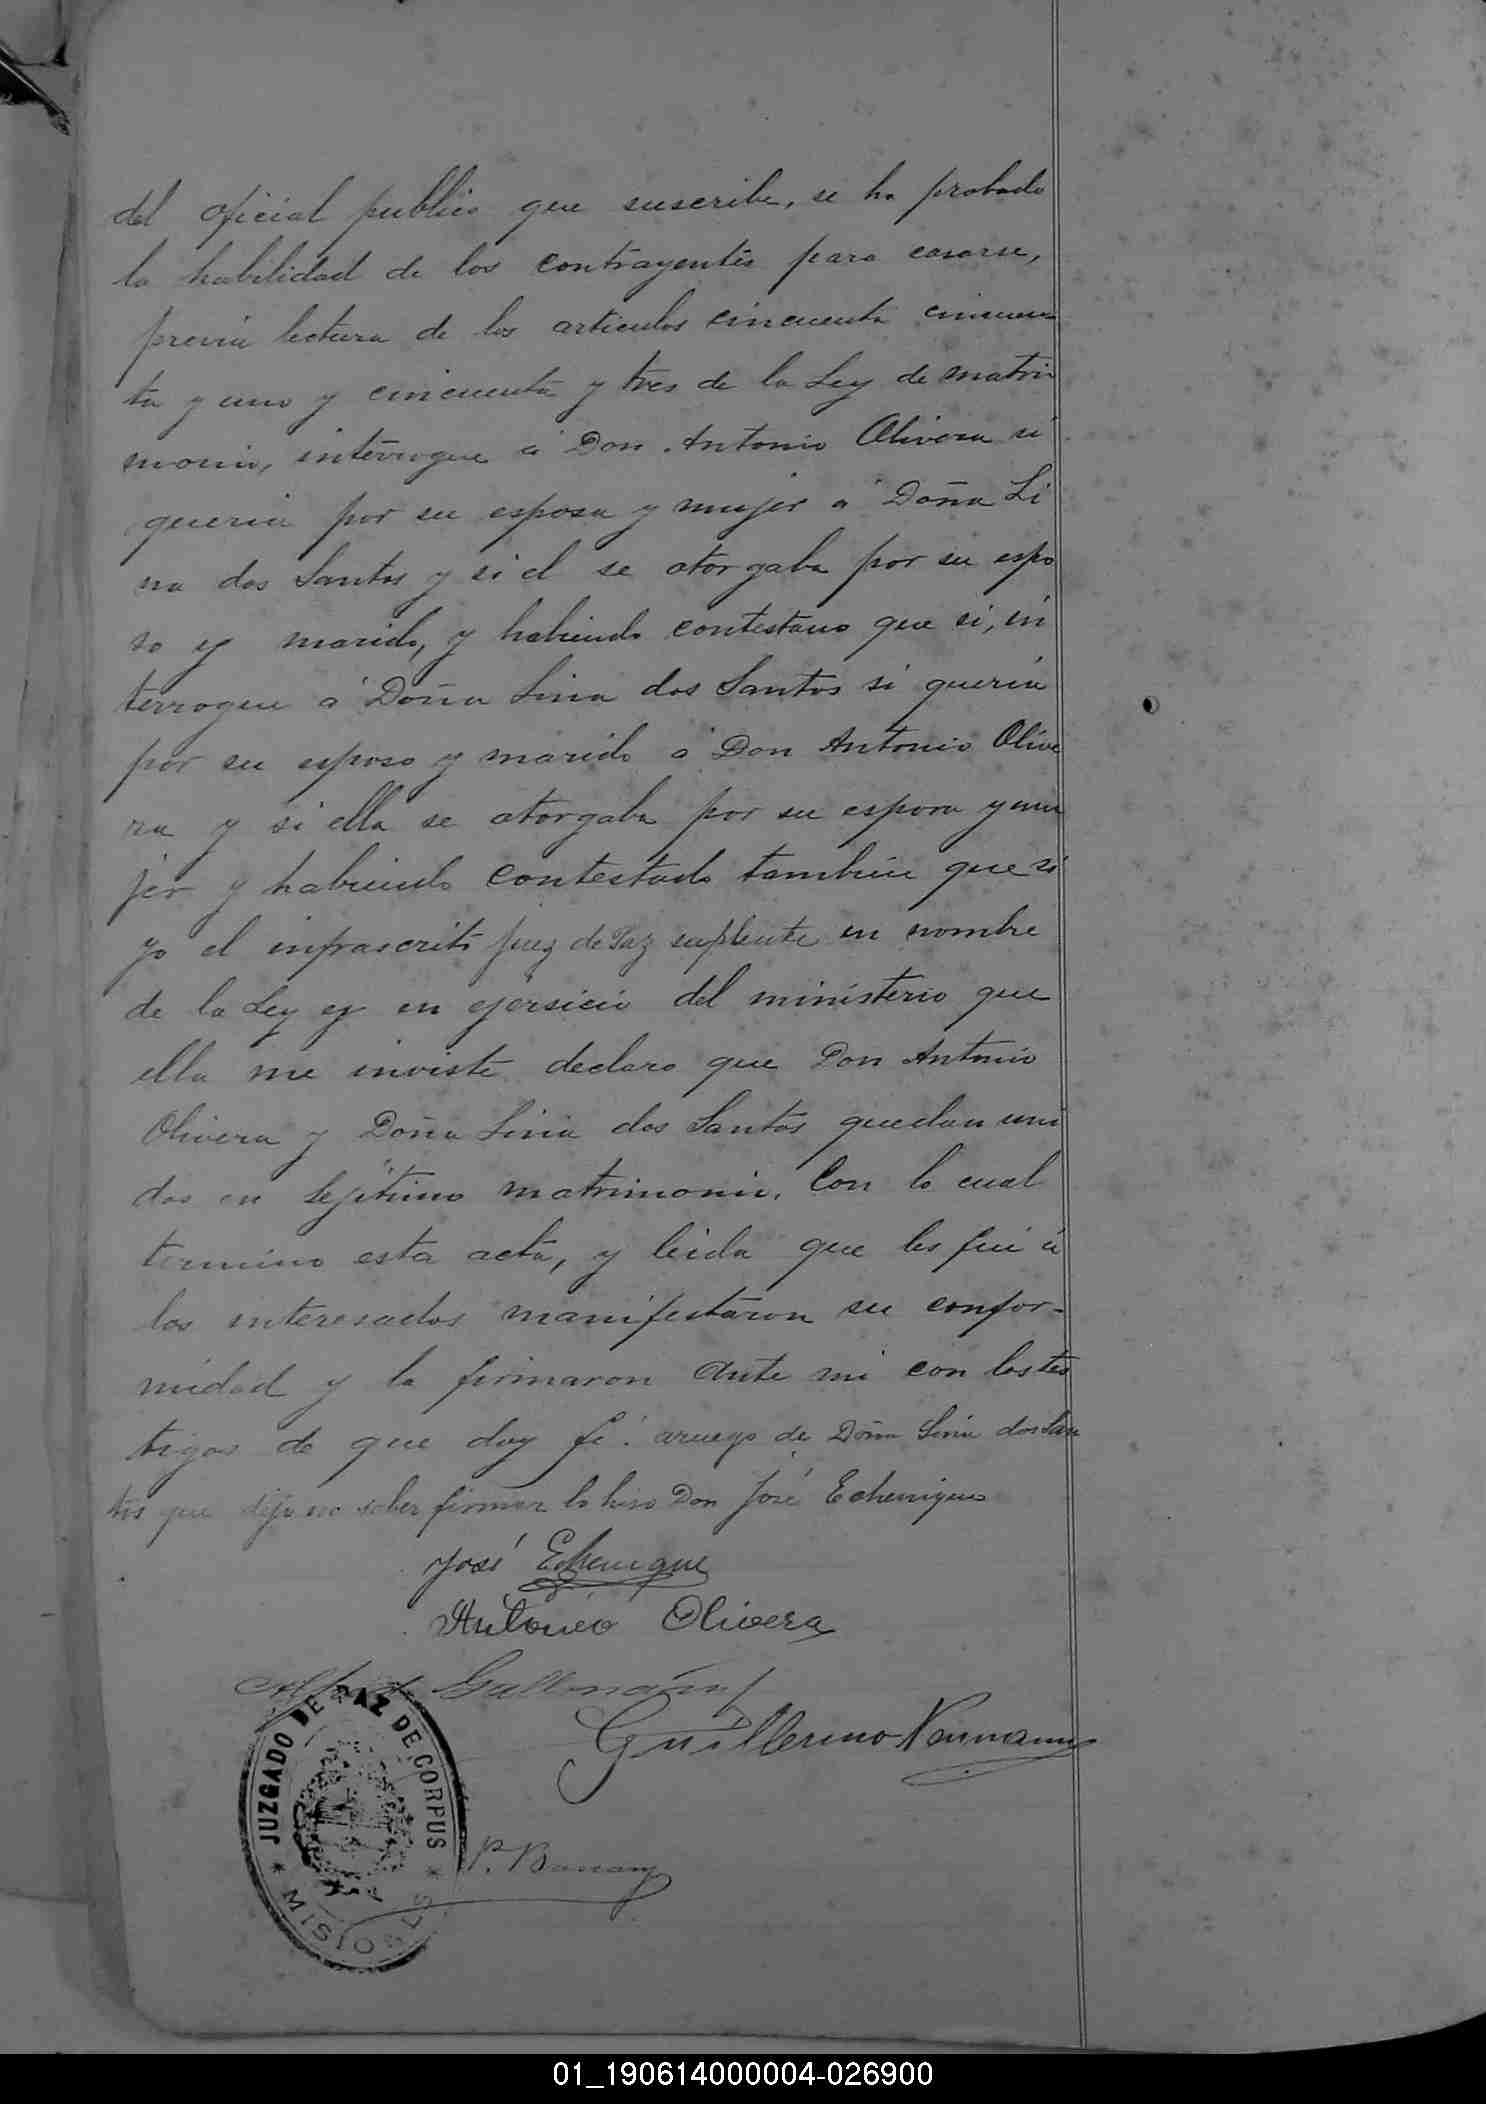 del oficial publico que suscribe, se ha probado
la habilidad de los contrayentes para casarse,
previa lectura de los articulos cincuenta cincuen
ta y uno y cincuenta y tres de la Ley de matri
monio, interrogue á Don Antonio Olivera si
queria por su esposa y mujer a Doña Li
na dos Santos y si el se otorgaba por su espo
so y marido, y habiendo contestado que si, in
terrogue a Doña Lina dos Santos si queria
por su esposo y marido a Don Antonio Olive
ra y si ella se otorgaba por su esposa y mu
jer y habiendo contestado tambien que si
yo el infrascrito juez de Paz suplente en nombre
de la Ley y en ejersicio del ministerio que
ella me inviste declaro que Don Antonio
Olivera y Doña Lina dos Santos quedan uni
dos en lejitimo matrimonio. Con lo cual
termino esta acta, y leida que les fué á
los interesados manifestaron su confor-
midad y la firmaron ante mi con los tes
tigos de que doy fé. aruego de Doña Lina dos San
tos que dijo no saber firmar lo hiso Don José Echenique
José Echenique
Antonio Olivera
Guillermo Naumann
JUZGADO DE PAZ DE CORPUS
* MISIONES *
01_190614000004-026900